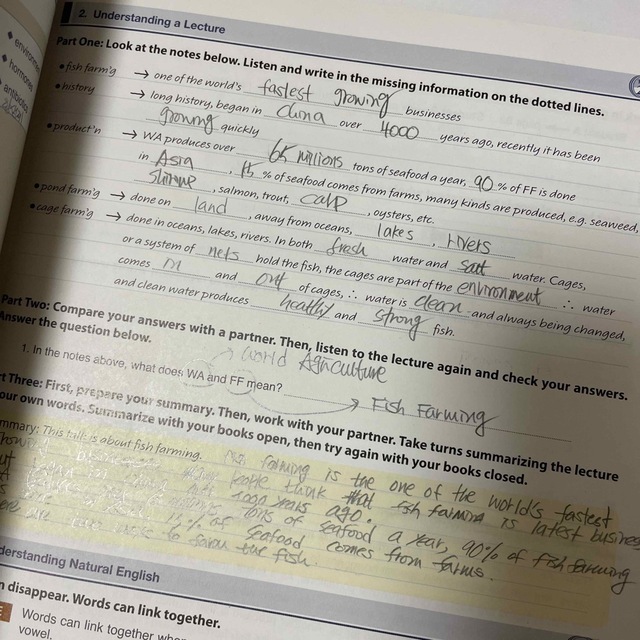 2. Understanding a Lecture
Part One: Look at the notes below. Listen and write in the missing information on the dotted lines.
• fish farm'g → one of the world's fastest growing businesses
• history → long history, began in China over 4000 years ago, recently it has been
growing quickly
• product'n → WA produces over 65 millions tons of seafood a year, 90 % of FF is done
in Asia, % of seafood comes from farms, many kinds are produced, e.g. seaweed,
shrimp, salmon, trout, calp, oysters, etc.
• pond farm'g → done on land, away from oceans, lakes, rivers
• cage farm'g → done in oceans, lakes, rivers. In both fresh water and salt water. Cages,
or a system of nets hold the fish, the cages are part of the environment ∴ water
comes in and out of cages, ∴ water is clean and always being changed,
and clean water produces healthy and strong fish.
Part Two: Compare your answers with a partner. Then, listen to the lecture again and check your answers.
Answer the question below.
World Agriculture
1. In the notes above, what does WA and FF mean?
→ Fish Farming
rt Three: First, prepare your summary. Then, work with your partner. Take turns summarizing the lecture
our own words. Summarize with your books open, then try again with your books closed.
mmary: This talk is about fish farming. farming is the one of the world's fastest
people think that fish farming is latest busines
years ago.
tons of seafood a year, 90% of fish farming
% of seafood comes from farms.
the fish.
derstanding Natural English
n disappear. Words can link together.
E Words can link together
vowel.
environ
hormone
antibiotic